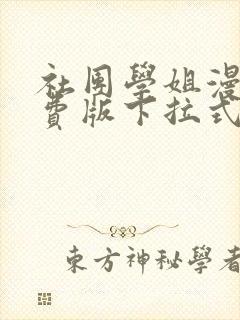 社團學姐漫
費版下拉式
東方神秘學者